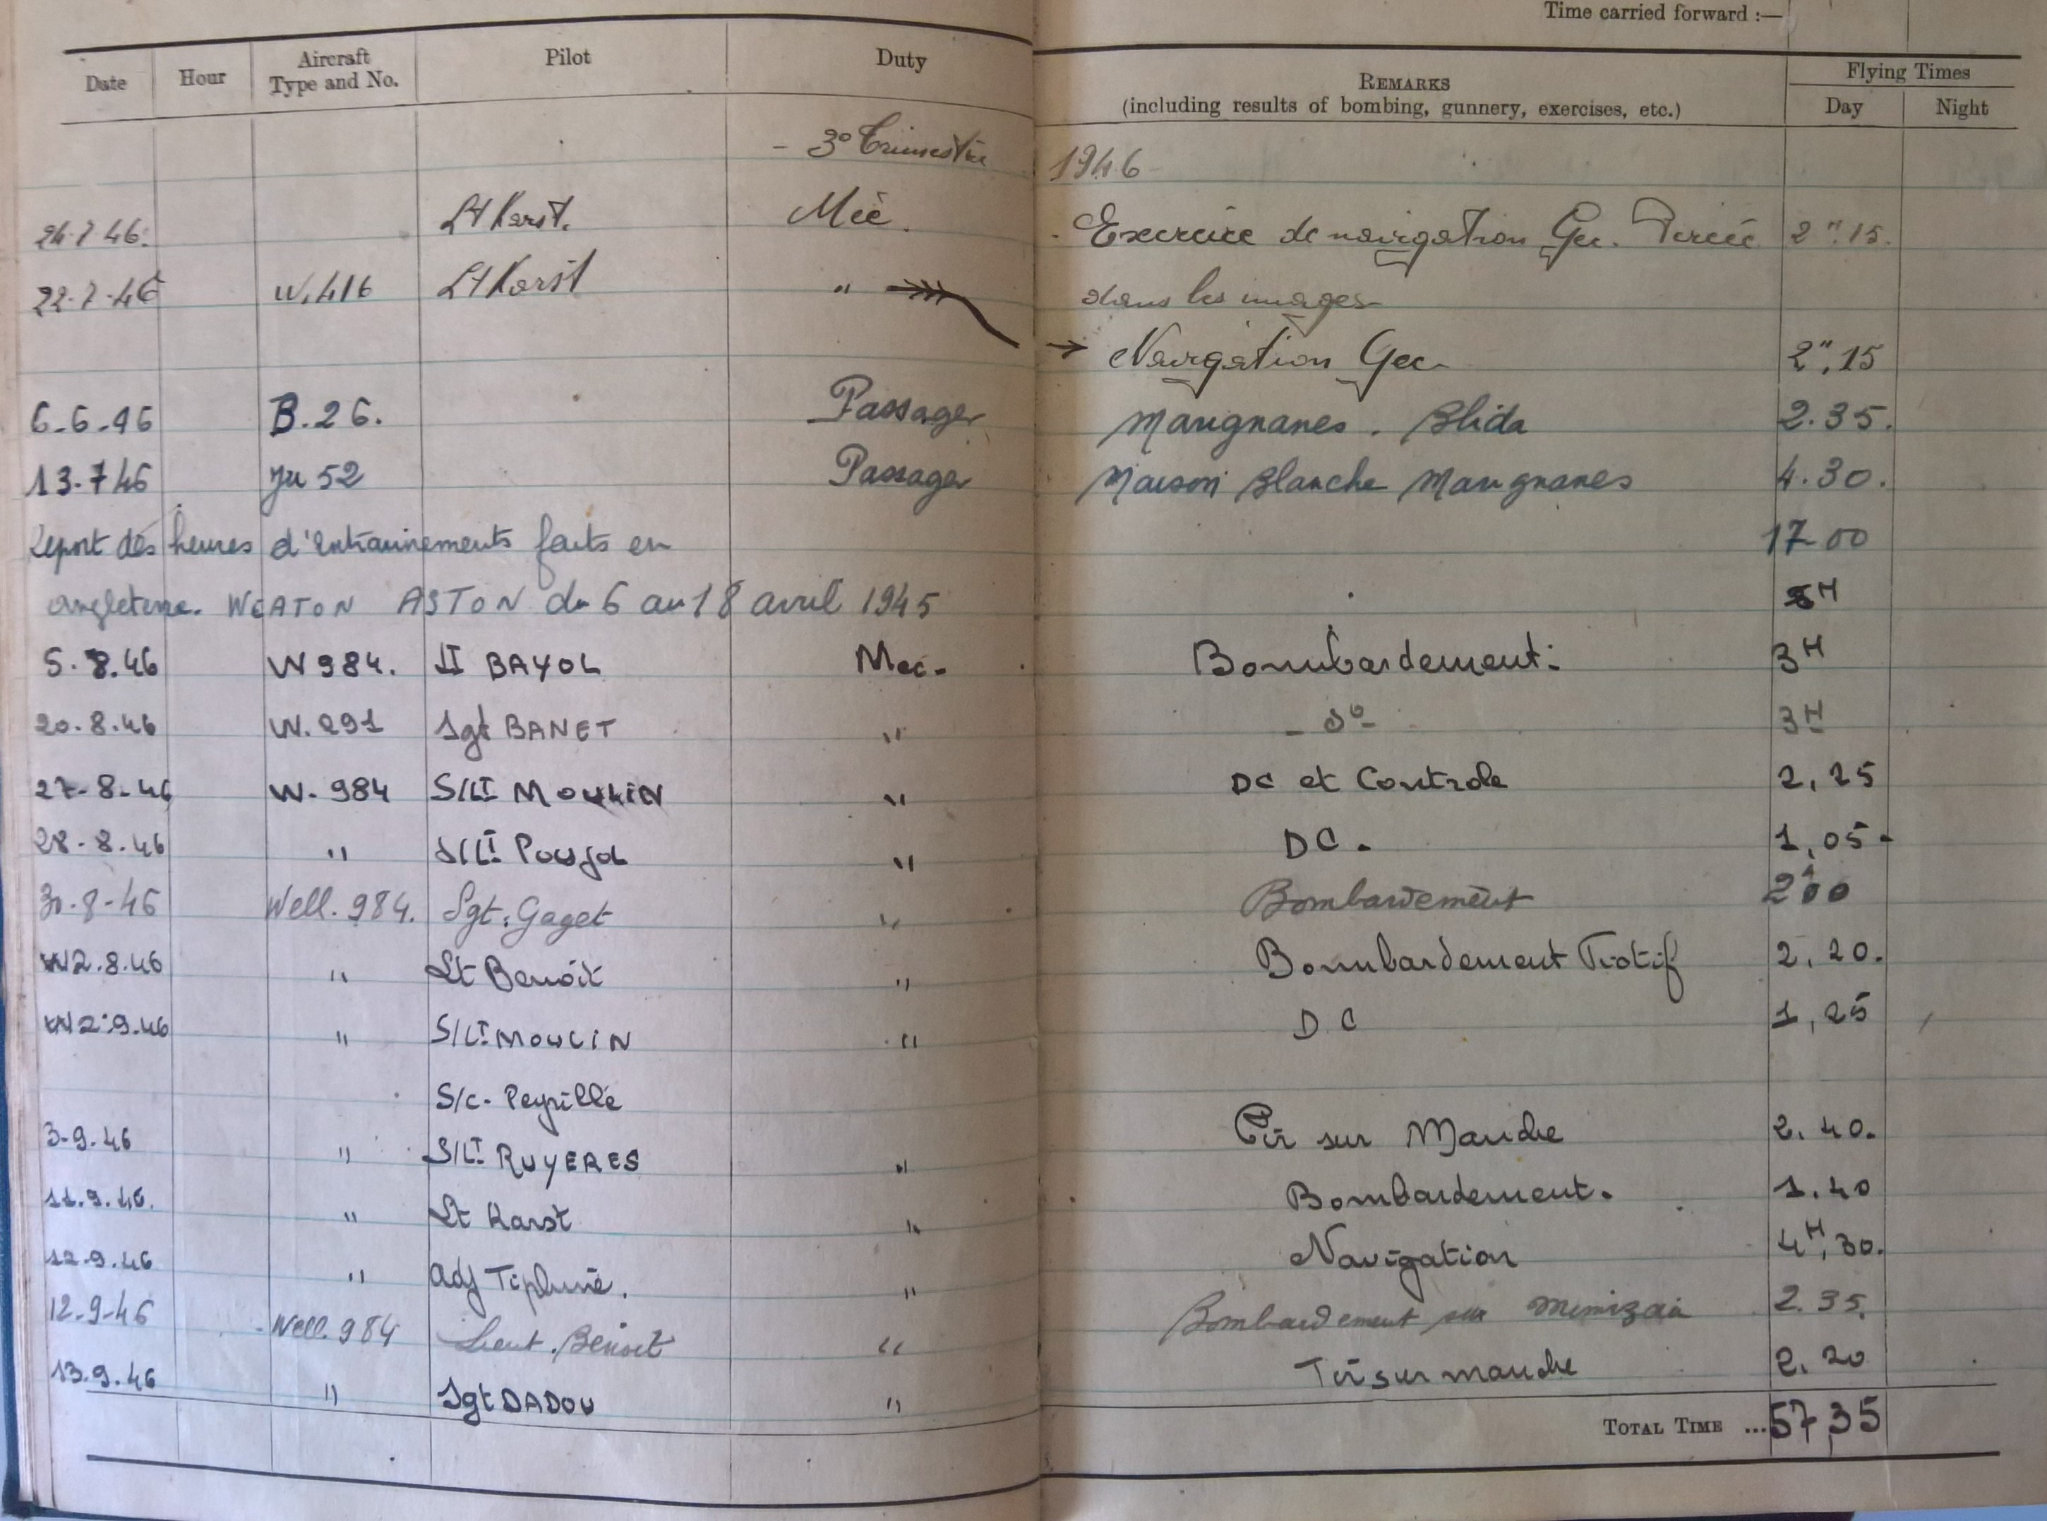 Time carried forward :—
Date Hour Aircraft Type and No. Pilot Duty REMARKS (including results of bombing, gunnery, exercises, etc.) Flying Times Day Night
- 3e Trimestre 1946
24.7.46. Lt Karst. Méc. Exercice de navigation Gee. Percée 2H.15.
22.7.46 W.416 Lt Karst " dans les nuages
→ Navigation Gee 2H.15
6-6-46 B.26. Passager Marignanes. Blida 2.35.
13.7 46 Ju 52 Passager Maison Blanche Marignanes 4.30.
Report des heures d'entrainements faits en 17-00
angleterre. WEATON ASTON du 6 au 18 avril 1945 H
5.8.46 W 984. Lt BAYOL Mec. Bombardement: 3H
20.8.46 W.291 Sgt BANET " - do - 3H
27-8-46 W-984 S/Lt MOULIN " DC et Controle 2,25
28.8.46 " S/Lt Poujol " DC. 1,05-
30-8-46 Well. 984. Sgt. Gaget " Bombardement 2h00
2.8.46 " Lt Benoît " Bombardement Fictif 2,20.
2.9.46 " S/Lt MOULIN " D C 1,25
S/c. Peyrille
3-9.46 " S/Lt RUYERES " Tir sur Manche 2.40.
11.9.46. " Lt Karst " Bombardement. 1.40
12.9.46 " adj " Navigation 4H,30.
12-9-46 Well. 984 Lieut. Benoit " Bombardement sur Mimizan 2.35.
13.9.46 " Sgt DADOU " Tir sur manche 2.20
TOTAL TIME ... 57,35